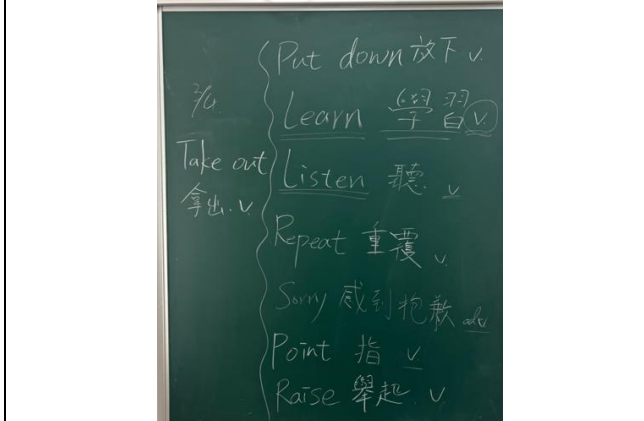 2/4
Take out
拿出 v.
Put down 放下 v.
Learn 學習 v.
Listen 聽 v
Repeat 重覆 v
Sorry 感到抱歉 adv
Point 指 v
Raise 舉起 v